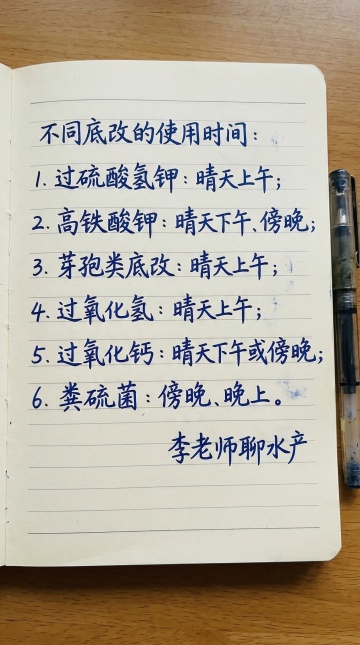 不同底改的使用时间:
1. 过硫酸氢钾:晴天上午;
2. 高铁酸钾:晴天下午、傍晚;
3. 芽孢类底改:晴天上午;
4. 过氧化氢:晴天上午;
5. 过氧化钙:晴天下午或傍晚;
6. 粪硫菌:傍晚、晚上。
李老师聊水产